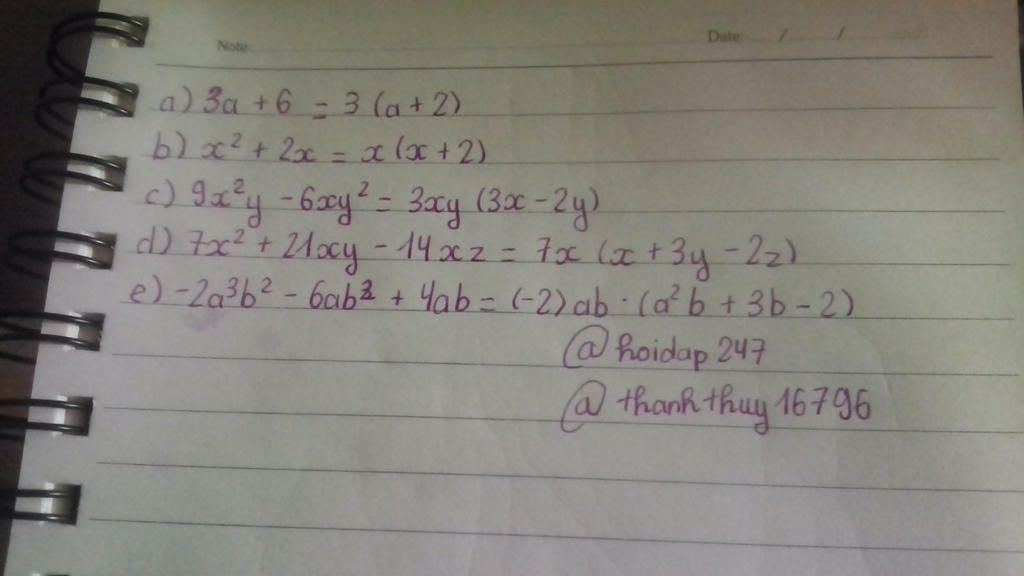 Note:
Date: / /
a) 3a + 6 = 3 (a + 2)
b) x² + 2x = x (x + 2)
c) 9x²y - 6xy² = 3xy (3x - 2y)
d) 7x² + 21xy - 14xz = 7x (x + 3y - 2z)
e) -2a³b² - 6ab² + 4ab = (-2) ab · (a²b + 3b - 2)
@ hoidap 247
@ thanh thuy 16796